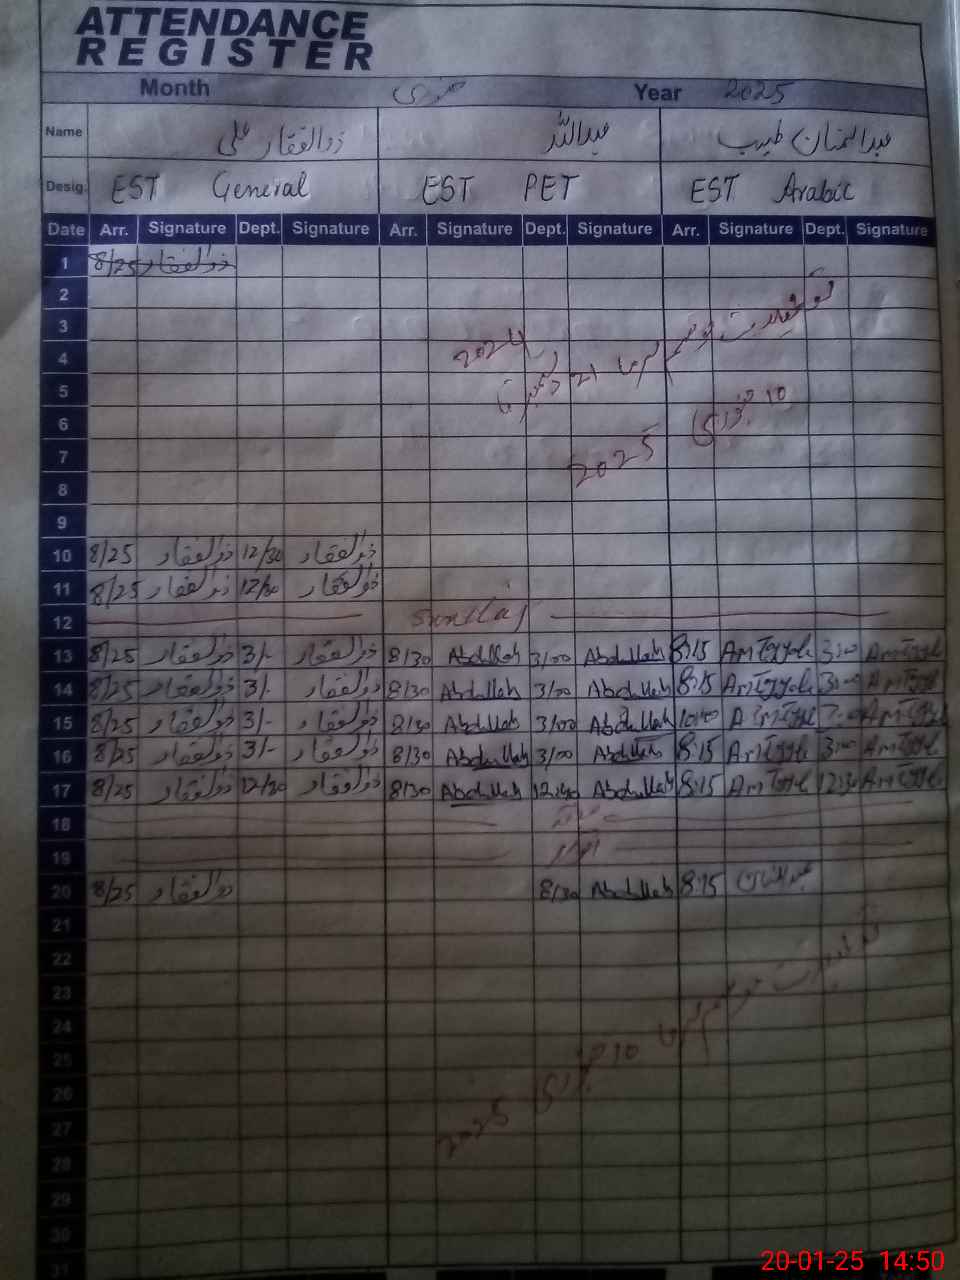 ATTENDANCE
REGISTER
Month جنوری Year 2025
Name ذوالفقار علی عبداللہ عبدالمنان طیب
Desig. EST General EST PET EST Arabic
Date Arr. Signature Dept. Signature Arr. Signature Dept. Signature Arr. Signature Dept. Signature
1 8/25 ذوالفقار
2
3
4 2024
5 21 دسمبر تا
6 10 جنوری
7 2025
8
9
10 8/25 ذوالفقار 12/30 ذوالفقار
11 8/25 ذوالفقار 12/30 ذوالفقار
12 Sunday
13 8/25 ذوالفقار 3/- ذوالفقار 8/30 Abdullah 3/00 Abdullah 8:15 3:00
14 8/25 ذوالفقار 3/- ذوالفقار 8/30 Abdullah 3/00 Abdullah 8:15 3:00
15 8/25 ذوالفقار 3/- ذوالفقار 8/30 Abdullah 3/00 Abdullah
16 8/25 ذوالفقار 3/- ذوالفقار 8/30 Abdullah 3/00 Abdullah 8:15 3:00
17 8/25 ذوالفقار 12/30 ذوالفقار 8/30 Abdullah 12:40 Abdullah 8:15 12:30
18
19 اتوار
20 8/25 ذوالفقار 8/30 Abdullah 8:15 عبدالمنان
21
22
23
24
25 10 جنوری
26
27 2025
28
29
30
31
20-01-25 14:50